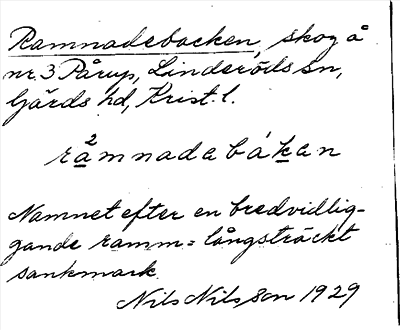 Ramnadebacken, skog å
nr. 3 Pårup, Linderöds sn,
Gärds hd, Krist. l.
ra²mnadebákan
Namnet efter en bredvidlig-
gande ramm = långsträckt
sankmark
Nils Nilsson 1929